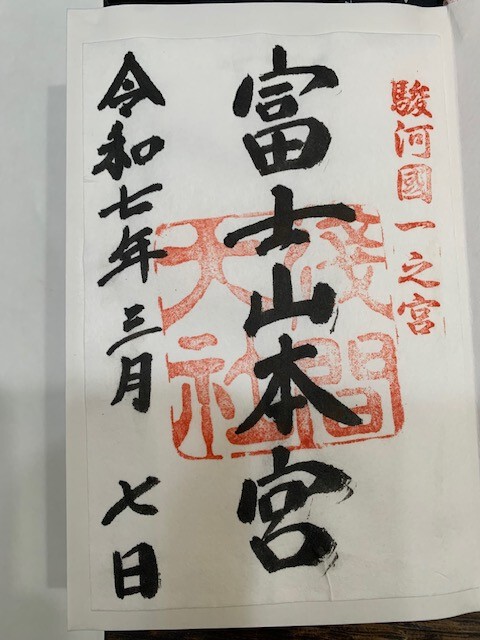 駿河國一之宮
富士山本宮
淺間
大社
令和七年三月七日